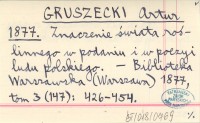 GRUSZECKI Artur
1877. Znaczenie świata roś-
linnego w podaniu i w poezyi
ludu polskiego. — Biblioteka
Warszawska (Warszawa) 1877,
tom 3 (147): 426-454.